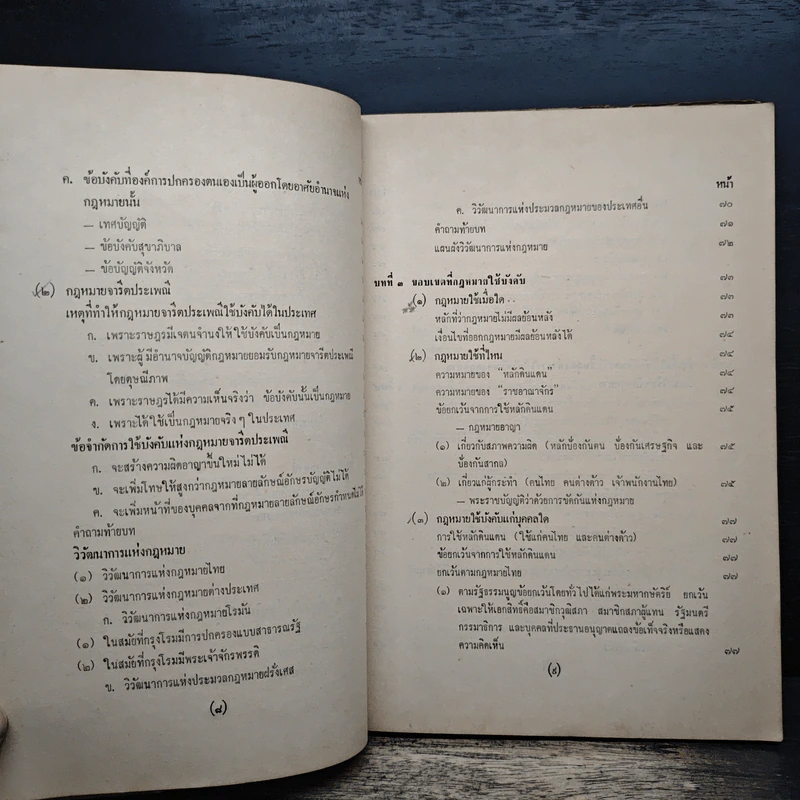 ค. ข้อบังคับที่องค์การปกครองตนเองเป็นผู้ออกโดยอาศัยอำนาจแห่ง
กฎหมายนั้น
— เทศบัญญัติ
— ข้อบังคับสุขาภิบาล
— ข้อบัญญัติจังหวัด
(๒) กฎหมายจารีตประเพณี
เหตุที่ทำให้กฎหมายจารีตประเพณีใช้บังคับได้ในประเทศ
ก. เพราะราษฎรมีเจตนจำนงให้ใช้บังคับเป็นกฎหมาย
ข. เพราะผู้มีอำนาจบัญญัติกฎหมายยอมรับกฎหมายจารีตประเพณี
โดยดุษณีภาพ
ค. เพราะราษฎรได้มีความเห็นจริงว่า ข้อบังคับนั้นเป็นกฎหมาย
ง. เพราะได้ใช้เป็นกฎหมายจริง ๆ ในประเทศ
ข้อจำกัดการใช้บังคับแห่งกฎหมายจารีตประเพณี
ก. จะสร้างความผิดอาญาขึ้นใหม่ไม่ได้
ข. จะเพิ่มโทษให้สูงกว่ากฎหมายลายลักษณ์อักษรบัญญัติไม่ได้
ค. จะเพิ่มหน้าที่ของบุคคลจากที่กฎหมายลายลักษณ์อักษรกำหนดไม่ได้
คำถามท้ายบท
วิวัฒนาการแห่งกฎหมาย
(๑) วิวัฒนาการแห่งกฎหมายไทย
(๒) วิวัฒนาการแห่งกฎหมายต่างประเทศ
ก. วิวัฒนาการแห่งกฎหมายโรมัน
(๑) ในสมัยที่กรุงโรมมีการปกครองแบบสาธารณรัฐ
(๒) ในสมัยที่กรุงโรมมีพระเจ้าจักรพรรดิ
ข. วิวัฒนาการแห่งประมวลกฎหมายฝรั่งเศส
(๘)
หน้า
ค. วิวัฒนาการแห่งประมวลกฎหมายของประเทศอื่น ๗๐
คำถามท้ายบท ๗๑
แผนผังวิวัฒนาการแห่งกฎหมาย ๗๒
บทที่ ๓ ขอบเขตที่กฎหมายใช้บังคับ ๗๓
(๑) กฎหมายใช้เมื่อใด ๗๓
หลักที่ว่ากฎหมายไม่มีผลย้อนหลัง ๗๓
เงื่อนไขที่ออกกฎหมายมีผลย้อนหลังได้ ๗๔
(๒) กฎหมายใช้ที่ไหน ๗๔
ความหมายของ “หลักดินแดน” ๗๔
ความหมายของ “ราชอาณาจักร” ๗๔
ข้อยกเว้นจากการใช้หลักดินแดน ๗๕
— กฎหมายอาญา
(๑) เกี่ยวกับสภาพความผิด (หลักป้องกันตน ป้องกันเศรษฐกิจ และ ๗๕
ป้องกันสากล)
(๒) เกี่ยวแก่ผู้กระทำ (คนไทย คนต่างด้าว เจ้าพนักงานไทย) ๗๕
— พระราชบัญญัติว่าด้วยการขัดกันแห่งกฎหมาย
(๓) กฎหมายใช้บังคับแก่บุคคลใด ๗๗
การใช้หลักดินแดน (ใช้แก่คนไทย และคนต่างด้าว) ๗๗
ข้อยกเว้นจากการใช้หลักดินแดน ๗๗
ยกเว้นตามกฎหมายไทย ๗๗
(๑) ตามรัฐธรรมนูญข้อยกเว้นโดยทั่วไปได้แก่พระมหากษัตริย์ ยกเว้น
เฉพาะให้เอกสิทธิ์คือสมาชิกวุฒิสภา สมาชิกสภาผู้แทน รัฐมนตรี
กรรมาธิการ และบุคคลที่ประธานอนุญาตแถลงข้อเท็จจริงหรือแสดง
ความคิดเห็น ๗๗
(๙)